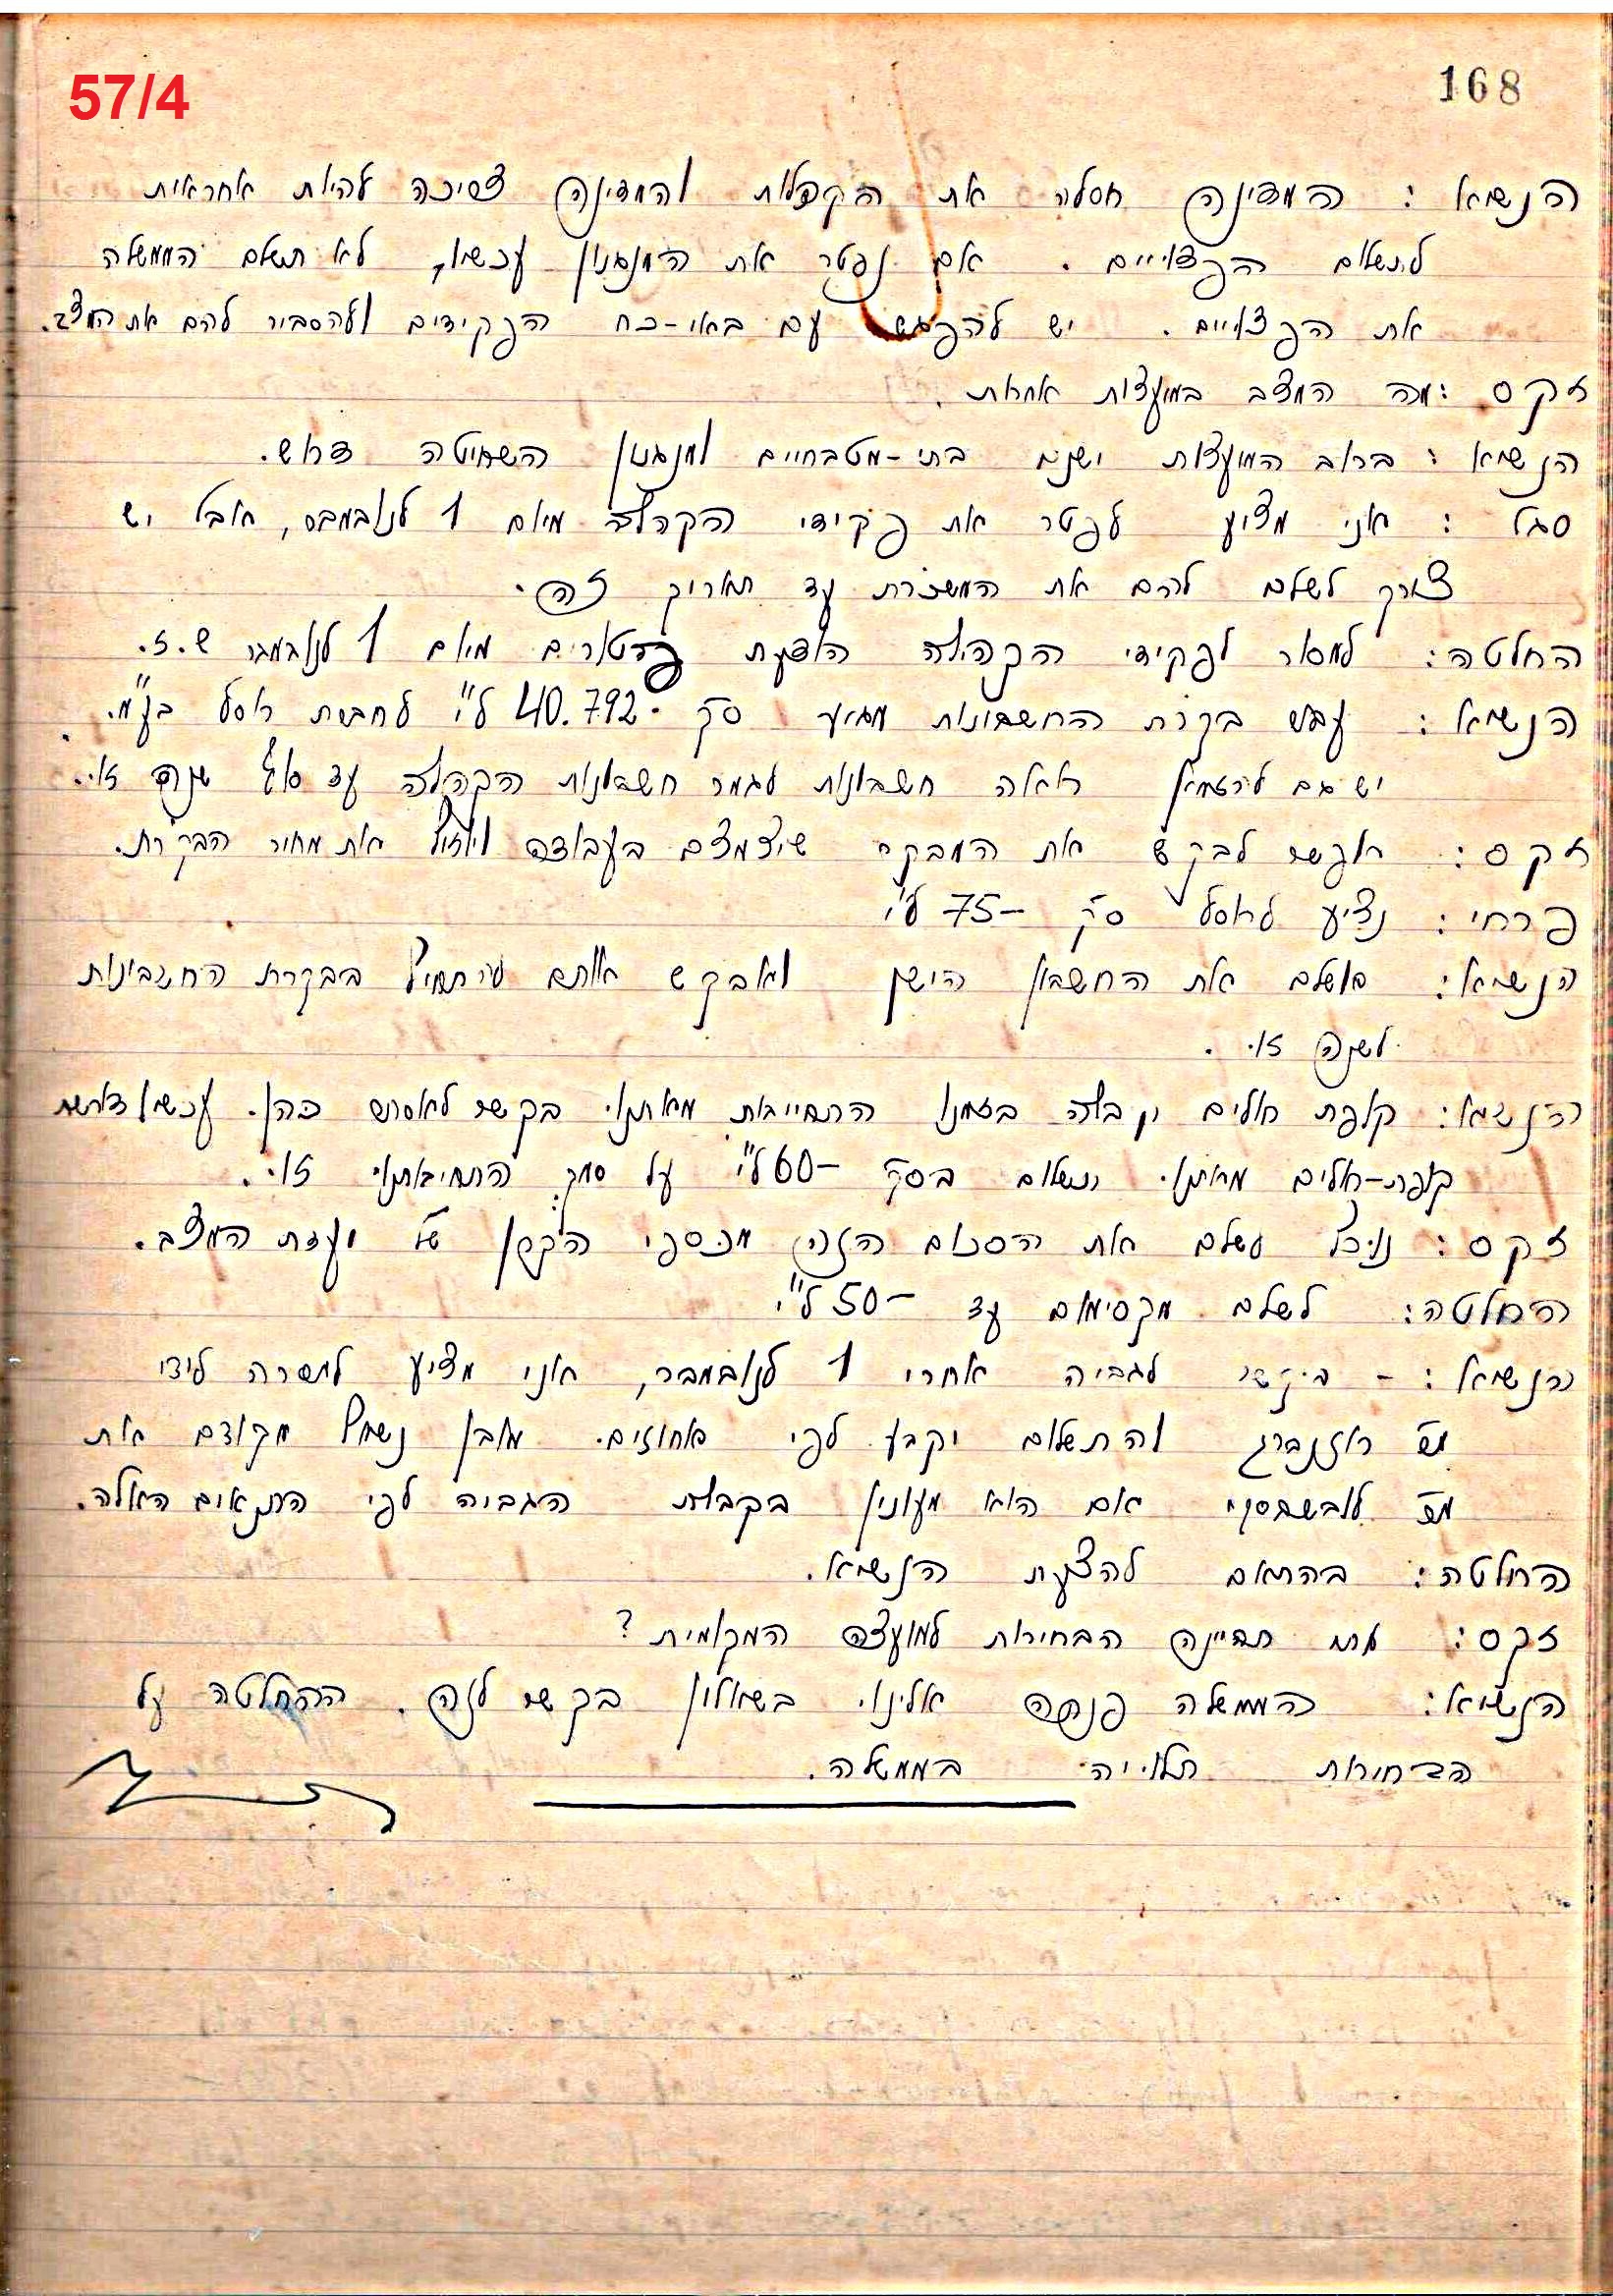 57/4
168
הנשיא : המדינה חסלה את הקהלות והמדינה צריכה להיות אחראית
לתשלום הפצויים . אם נפטר את המנגנון עכשיו, לא תשלם הממשלה
את הפצויים . יש להפגש עם באי-כח הפקידים ולהסביר להם את המצב.
זקס : מה המצב במועצות אחרות .
הנשיא : ברוב המועצות ישנם בתי-מטבחיים ומנגנון השחיטה דרוש.
סגל : אני מציע לפטר את פקידי הקהלה מיום 1 לנובמבר, אבל יש
צורך לשלם להם את המשכורת עד תאריך זה.
החלטה: למסור לפקידי הקהילה הודעת פטורים מיום 1 לנובמבר ש.ז.
הנשיא : עבור בקרת החשבונות מגיע סך 40.792 ל"י לחברת ראסל בע"מ.
יש גם רואה חשבונות לגמר חשבונות הקהילה עד סוף שנה זו.
זקס : אפשר לבקש את המבקר שיצמצם בעבודה ויוזיל את מחיר הבקרת.
פרחי : נציע לראסל סך 75- ל"י
הנשיא: את החשבון הישן ואבקש אותם להתחיל בבקרת החשבונות
לשנה זו .
הנשיא: קופת חולים קבלה בזמנו התחייבות מאתנו בקשר כהן. עכשיו דורשת
קופת-חולים מאתנו תשלום בסך 60- ל"י על סמך התחיבותנו זו .
זקס : נוכל לשלם את הסכום הזה מכספי הקרן של ועדת המצב.
החלטה: לשלם מקסימום עד 50- ל"י
הנשיא : - בקשר לגביה אחרי 1 לנובמבר, אני מציע למסרה לידי
מר רוזנברג והתשלום יקבע לפי אחוזים. מובן נשאל מקודם את
מר אם הוא מעונין בקבלת הגביה לפי התנאים האלה.
החלטה : בהתאם להצעת הנשיא.
זקס: מתי תהיינה הבחירות למועצה המקומית ?
הנשיא: הממשלה פנתה אלינו בשאלון בקשר לזה . ההחלטה על
הבחירות תלויה בממשלה.